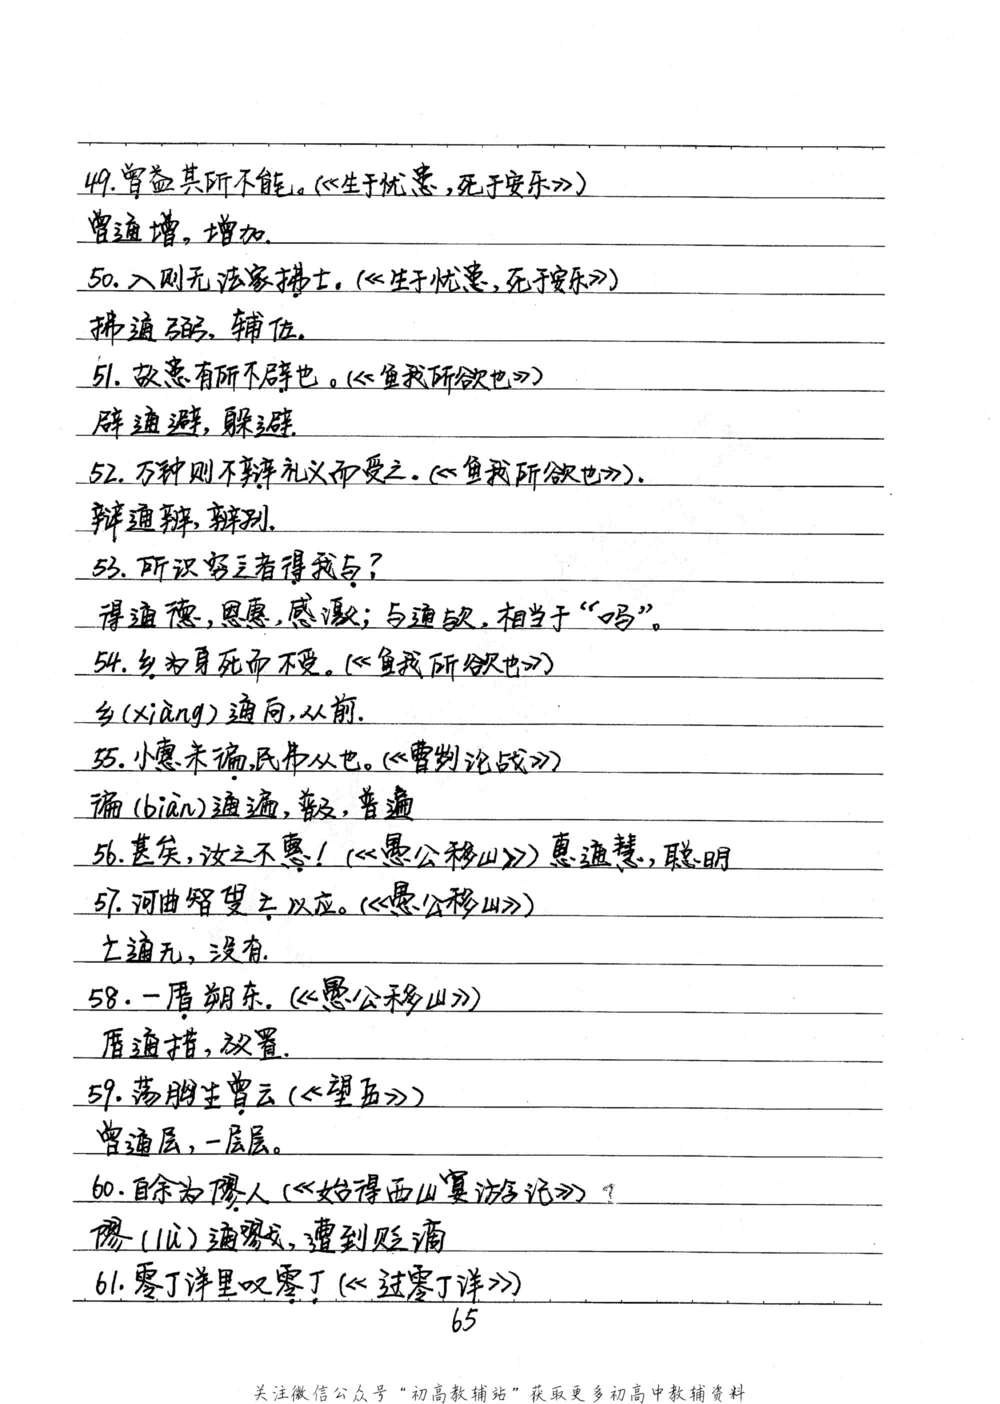 49.曾益其所不能。(《生于忧患,死于安乐》)
曾通增,增加.
50.入则无法家拂士。(《生于忧患,死于安乐》)
拂通弼,辅佐.
51.故患有所不辟也。(《鱼我所欲也》)
辟通避,躲避.
52.万钟则不辩礼义而受之。(《鱼我所欲也》).
辩通辨,辨别.
53.所识穷乏者得我与?
得通德,恩惠,感激;与通欤,相当于“吗”。
54.乡为身死而不受。(《鱼我所欲也》)
乡(xiàng)通向,从前.
55.小惠未徧,民弗从也。(《曹刿论战》)
徧(biàn)通遍,普及,普遍
56.甚矣,汝之不惠!(《愚公移山》)惠通慧,聪明
57.河曲智叟亡以应。(《愚公移山》)
亡通无,没有.
58.一厝朔东.(《愚公移山》)
厝通措,放置.
59.荡胸生曾云(《望岳》)
曾通层,一层层。
60.自余为僇人(《始得西山宴游记》)
僇(lù)通戮,遭到贬谪
61.零丁洋里叹零丁(《过零丁洋》)
65
关注微信公众号“初高教辅站”获取更多初高中教辅资料